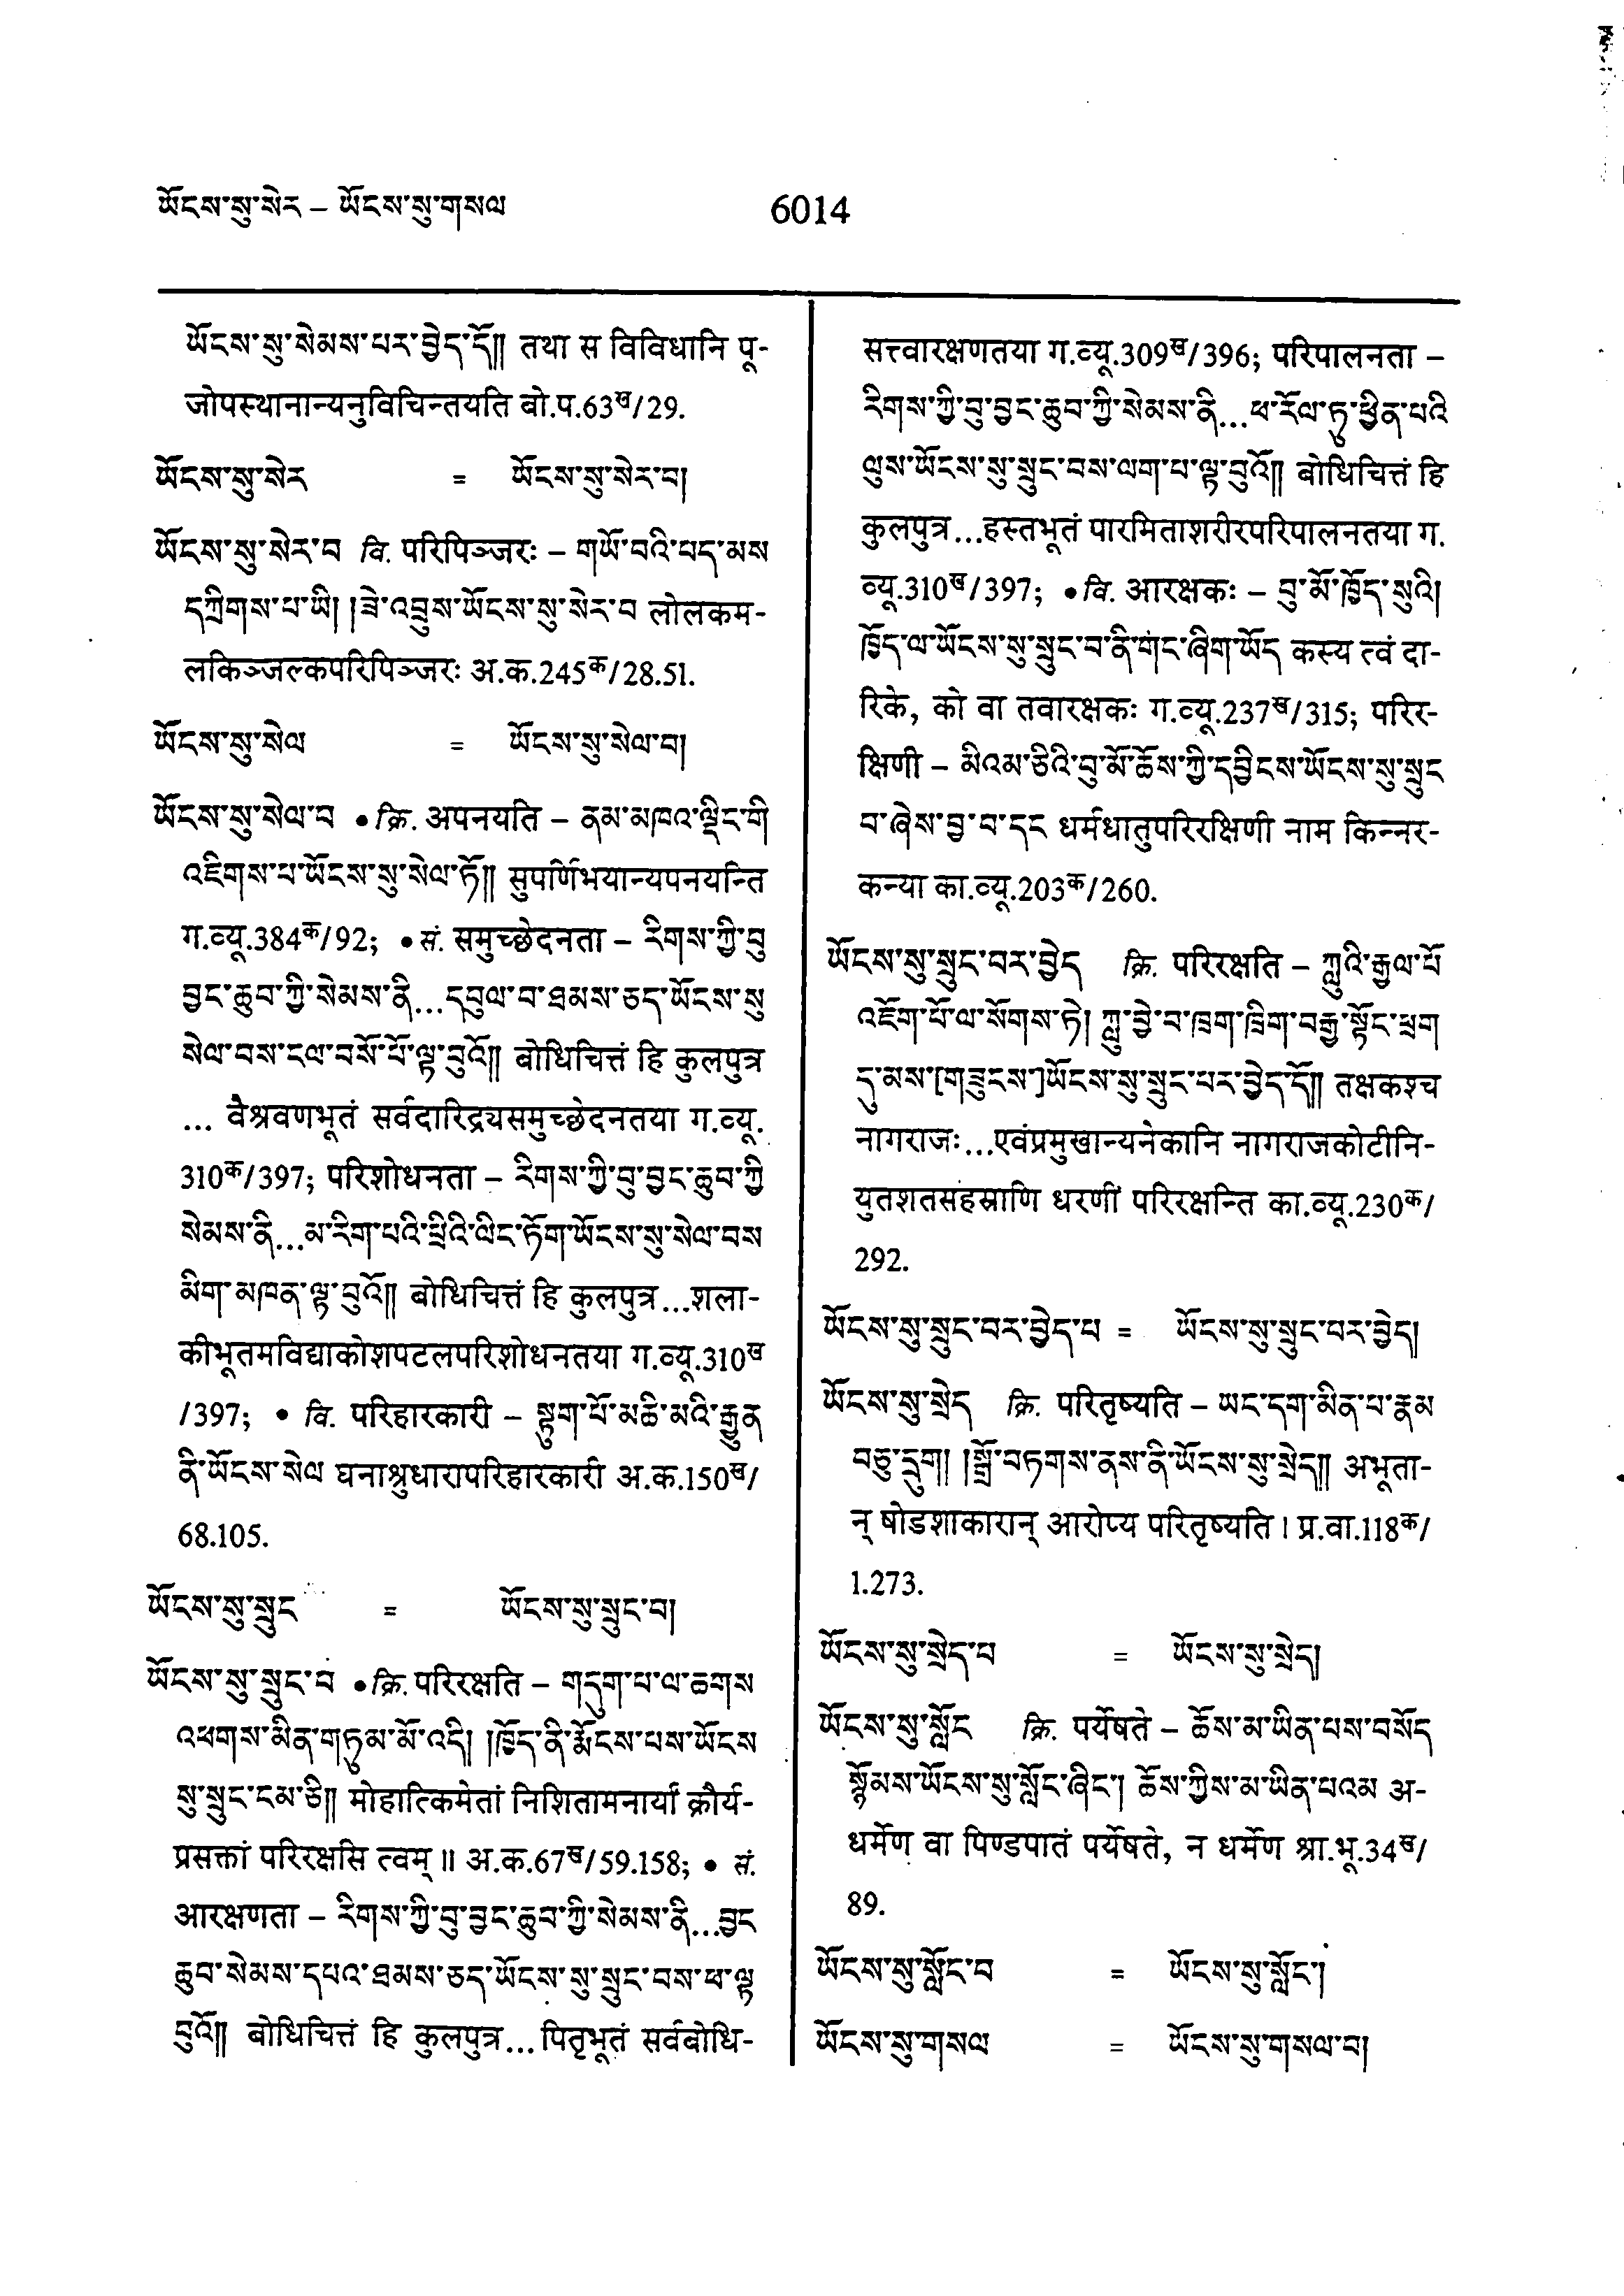 ཡོངས་སུ་སེར – ཡོངས་སུ་གསལ
6014
ཡོངས་སུ་སེམས་པར་བྱེད་དོ།། तथा स विविधानि पू-
जोपस्थानान्यनुविचिन्तयति बो.प.63ख/29.
ཡོངས་སུ་སེར = ཡོངས་སུ་སེར་བ།
ཡོངས་སུ་སེར་བ वि. परिपिञ्जरः – གཡོ་བའི་པད་མས
དཀྲིགས་པ་ཡི། །ཟེ་འབྲུས་ཡོངས་སུ་སེར་བ लोलकम-
लकिञ्जल्कपरिपिञ्जरः अ.क.245क/28.51.
ཡོངས་སུ་སེལ = ཡོངས་སུ་སེལ་བ།
ཡོངས་སུ་སེལ་བ •क्रि. अपनयति – ནམ་མཁའ་ལྡིང་གི
འཇིགས་པ་ཡོངས་སུ་སེལ་ཏོ།། सुपर्णिभयान्यपनयन्ति
ग.व्यू.384क/92; •सं. समुच्छेदनता – རིགས་ཀྱི་བུ
བྱང་ཆུབ་ཀྱི་སེམས་ནི...དབུལ་བ་ཐམས་ཅད་ཡོངས་སུ
སེལ་བས་ངལ་བསོ་པོ་ལྟ་བུའོ།། बोधिचित्तं हि कुलपुत्र
... वैश्रवणभूतं सर्वदारिद्र्यसमुच्छेदनतया ग.व्यू.
310क/397; परिशोधनता – རིགས་ཀྱི་བུ་བྱང་ཆུབ་ཀྱི
སེམས་ནི...མ་རིག་པའི་ཕྲིའི་ལིང་ཏོག་ཡོངས་སུ་སེལ་བས
མིག་མཁན་ལྟ་བུའོ།། बोधिचित्तं हि कुलपुत्र...शला-
कीभूतमविद्याकोशपटलपरिशोधनतया ग.व्यू.310ख
/397; • वि. परिहारकारी – སྟུག་པོ་མཆི་མའི་རྒྱུན
ནི་ཡོངས་སེལ घनाश्रुधारापरिहारकारी अ.क.150ख/
68.105.
ཡོངས་སུ་སྲུང = ཡོངས་སུ་སྲུང་བ།
ཡོངས་སུ་སྲུང་བ •क्रि. परिरक्षति – གདུག་པ་ལ་ཆགས
འཕགས་མིན་གཏུམ་མོ་འདི། །ཁྱོད་ནི་རྨོངས་པས་ཡོངས
སུ་སྲུང་ངམ་ཅི།། मोहात्किमेतां निशितामनार्यां क्रौर्य-
प्रसक्तां परिरक्षसि त्वम्॥ अ.क.67ख/59.158; • सं.
आरक्षणता – རིགས་ཀྱི་བུ་བྱང་ཆུབ་ཀྱི་སེམས་ནི...བྱང
ཆུབ་སེམས་དཔའ་ཐམས་ཅད་ཡོངས་སུ་སྲུང་བས་ཕ་ལྟ
བུའོ།། बोधिचित्तं हि कुलपुत्र... पितृभूतं सर्वबोधि-
सत्त्वारक्षणतया ग.व्यू.309ख/396; परिपालनता –
རིགས་ཀྱི་བུ་བྱང་ཆུབ་ཀྱི་སེམས་ནི...ཕ་རོལ་ཏུ་ཕྱིན་པའི
ལུས་ཡོངས་སུ་སྲུང་བས་ལག་པ་ལྟ་བུའོ།། बोधिचित्तं हि
कुलपुत्र...हस्तभूतं पारमिताशरीरपरिपालनतया ग.
व्यू.310ख/397; •वि. आरक्षकः – བུ་མོ་ཁྱོད་སུའི།
ཁྱོད་ལ་ཡོངས་སུ་སྲུང་བ་ནི་གང་ཞིག་ཡོད कस्य त्वं दा-
रिके, को वा तवारक्षकः ग.व्यू.237ख/315; परिर-
क्षिणी – མིའམ་ཅིའི་བུ་མོ་ཆོས་ཀྱི་དབྱིངས་ཡོངས་སུ་སྲུང
བ་ཞེས་བྱ་བ་དང धर्मधातुपरिरक्षिणी नाम किन्नर-
कन्या का.व्यू.203क/260.
ཡོངས་སུ་སྲུང་བར་བྱེད क्रि. परिरक्षति – ཀླུའི་རྒྱལ་པོ
འཇོག་པོ་ལ་སོགས་ཏེ། ཀླུ་བྱེ་བ་ཁྲག་ཁྲིག་བརྒྱ་སྟོང་ཕྲག
དུ་མས་[གཟུངས་]ཡོངས་སུ་སྲུང་པར་བྱེད་དོ།། तक्षकश्च
नागराजः...एवंप्रमुखान्यनेकानि नागराजकोटीनि-
युतशतसहस्राणि धरणीं परिरक्षन्ति का.व्यू.230क/
292.
ཡོངས་སུ་སྲུང་བར་བྱེད་པ = ཡོངས་སུ་སྲུང་བར་བྱེད།
ཡོངས་སུ་སྲེད क्रि. परितृष्यति – ཡང་དག་མིན་པ་རྣམ
བཅུ་དྲུག། །སྒྲོ་བཏགས་ནས་ནི་ཡོངས་སུ་སྲེད།། अभूता-
न् षोडशाकारान् आरोप्य परितृष्यति। प्र.वा.118क/
1.273.
ཡོངས་སུ་སྲེད་པ = ཡོངས་སུ་སྲེད།
ཡོངས་སུ་སློང क्रि. पर्येषते – ཆོས་མ་ཡིན་པས་བསོད
སྙོམས་ཡོངས་སུ་སློང་ཞིང་། ཆོས་ཀྱིས་མ་ཡིན་པའམ अ-
धर्मेण वा पिण्डपातं पर्येषते, न धर्मेण श्रा.भू.34ख/
89.
ཡོངས་སུ་སློང་བ = ཡོངས་སུ་སློང་།
ཡོངས་སུ་གསལ = ཡོངས་སུ་གསལ་བ།